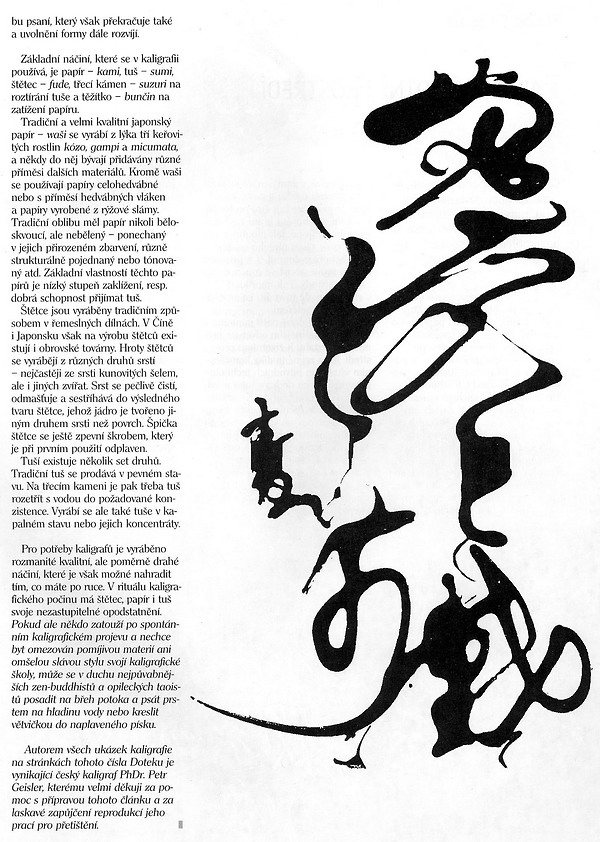 bu psaní, který však překračuje také
a uvolnění formy dále rozvíjí.
Základní náčiní, které se v kaligrafii
používá, je papír – kami, tuš – sumi,
štětec – fude, třecí kámen – suzuri na
roztírání tuše a těžítko – bunčin na
zatížení papíru.
Tradiční a velmi kvalitní japonský
papír – waši se vyrábí z lýka tří keřovi-
tých rostlin kózo, gampi a micumata,
a někdy do něj bývají přidávány různé
příměsi dalších materiálů. Kromě waši
se používají papíry celohedvábné
nebo s příměsí hedvábných vláken
a papíry vyrobené z rýžové slámy.
Tradiční oblibu měl papír nikoli bělo-
skvoucí, ale nebělený – ponechaný
v jejich přirozeném zbarvení, různě
strukturálně pojednaný nebo tónova-
ný atd. Základní vlastností těchto pa-
pírů je nízký stupeň zaklížení, resp.
dobrá schopnost přijímat tuš.
Štětce jsou vyráběny tradičním způ-
sobem v řemeslných dílnách. V Číně
i Japonsku však na výrobu štětců exi-
stují i obrovské továrny. Hroty štětců
se vyrábějí z různých druhů srstí
– nejčastěji ze srsti kunovitých šelem,
ale i jiných zvířat. Srst se pečlivě čistí,
odmašťuje a sestříhává do výsledného
tvaru štětce, jehož jádro je tvořeno ji-
ným druhem srsti než povrch. Špička
štětce se ještě zpevní škrobem, který
je při prvním použití odplaven.
Tuší existuje několik set druhů.
Tradiční tuš se prodává v pevném sta-
vu. Na třecím kameni je pak třeba tuš
rozetřít s vodou do požadované kon-
zistence. Vyrábí se ale také tuše v ka-
palném stavu nebo jejich koncentráty.
Pro potřeby kaligrafů je vyráběno
rozmanité kvalitní, ale poměrně drahé
náčiní, které je však možné nahradit
tím, co máte po ruce. V rituálu kaligra-
fického počinu má štětec, papír i tuš
svoje nezastupitelné opodstatnění.
Pokud ale někdo zatouží po spontán-
ním kaligrafickém projevu a nechce
byt omezován pomíjivou materií ani
omšelou slávou stylu svojí kaligrafické
školy, může se v duchu nejpůvabněj-
ších zen-buddhistů a opileckých taois-
tů posadit na břeh potoka a psát prs-
tem na hladinu vody nebo kreslit
větvičkou do naplaveného písku.
Autorem všech ukázek kaligrafie
na stránkách tohoto čísla Doteku je
vynikající český kaligraf PhDr. Petr
Geisler, kterému velmi děkuji za po-
moc s přípravou tohoto článku a za
laskavé zapůjčení reprodukcí jeho
prací pro přetištění.